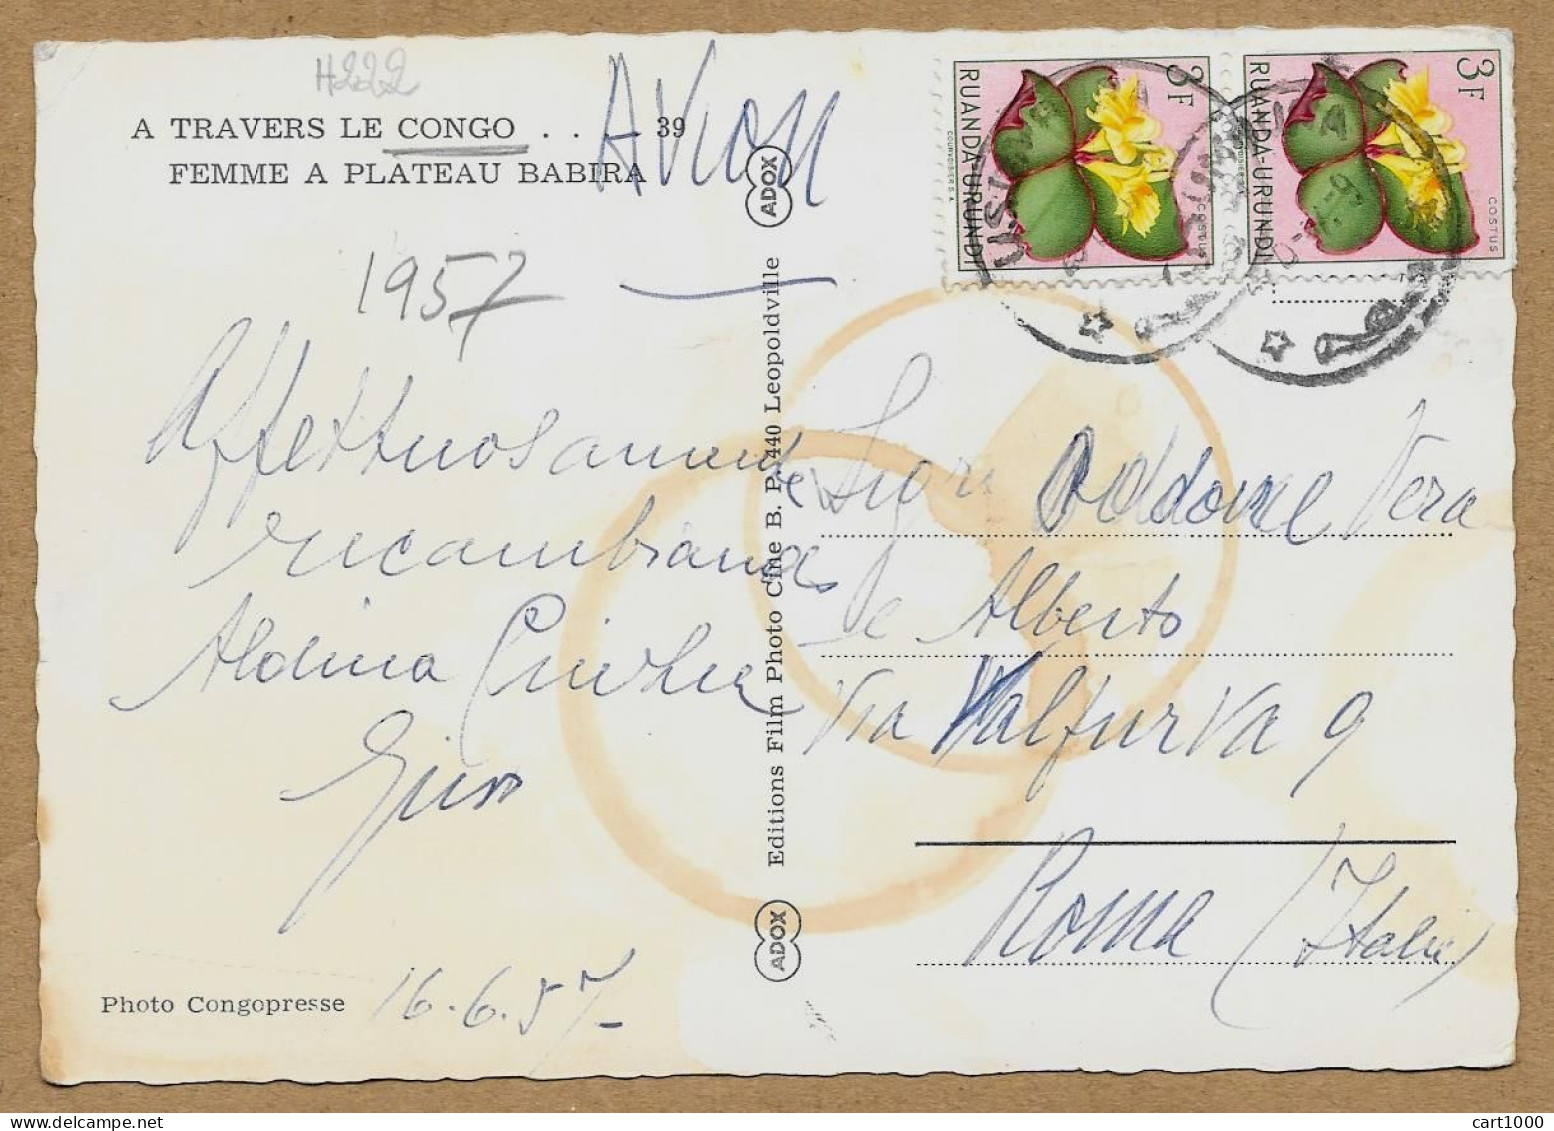 H222
A TRAVERS LE CONGO . . . 39
FEMME A PLATEAU BABIRA
AVION
1957
Affettuosamente
ricambiano
Aldina
16.6.57
Photo Congopresse
ADOX
Editions Film Photo Cine B. P. 440 Leopoldville
ADOX
RUANDA-URUNDI
3F
COSTUS
COURVOISIER S.A.
RUANDA-URUNDI
3F
COSTUS
COURVOISIER S.A.
Sigri Oddone Vera
e Alberto
Via Valfurva 9
Roma (Italia)
cart1000